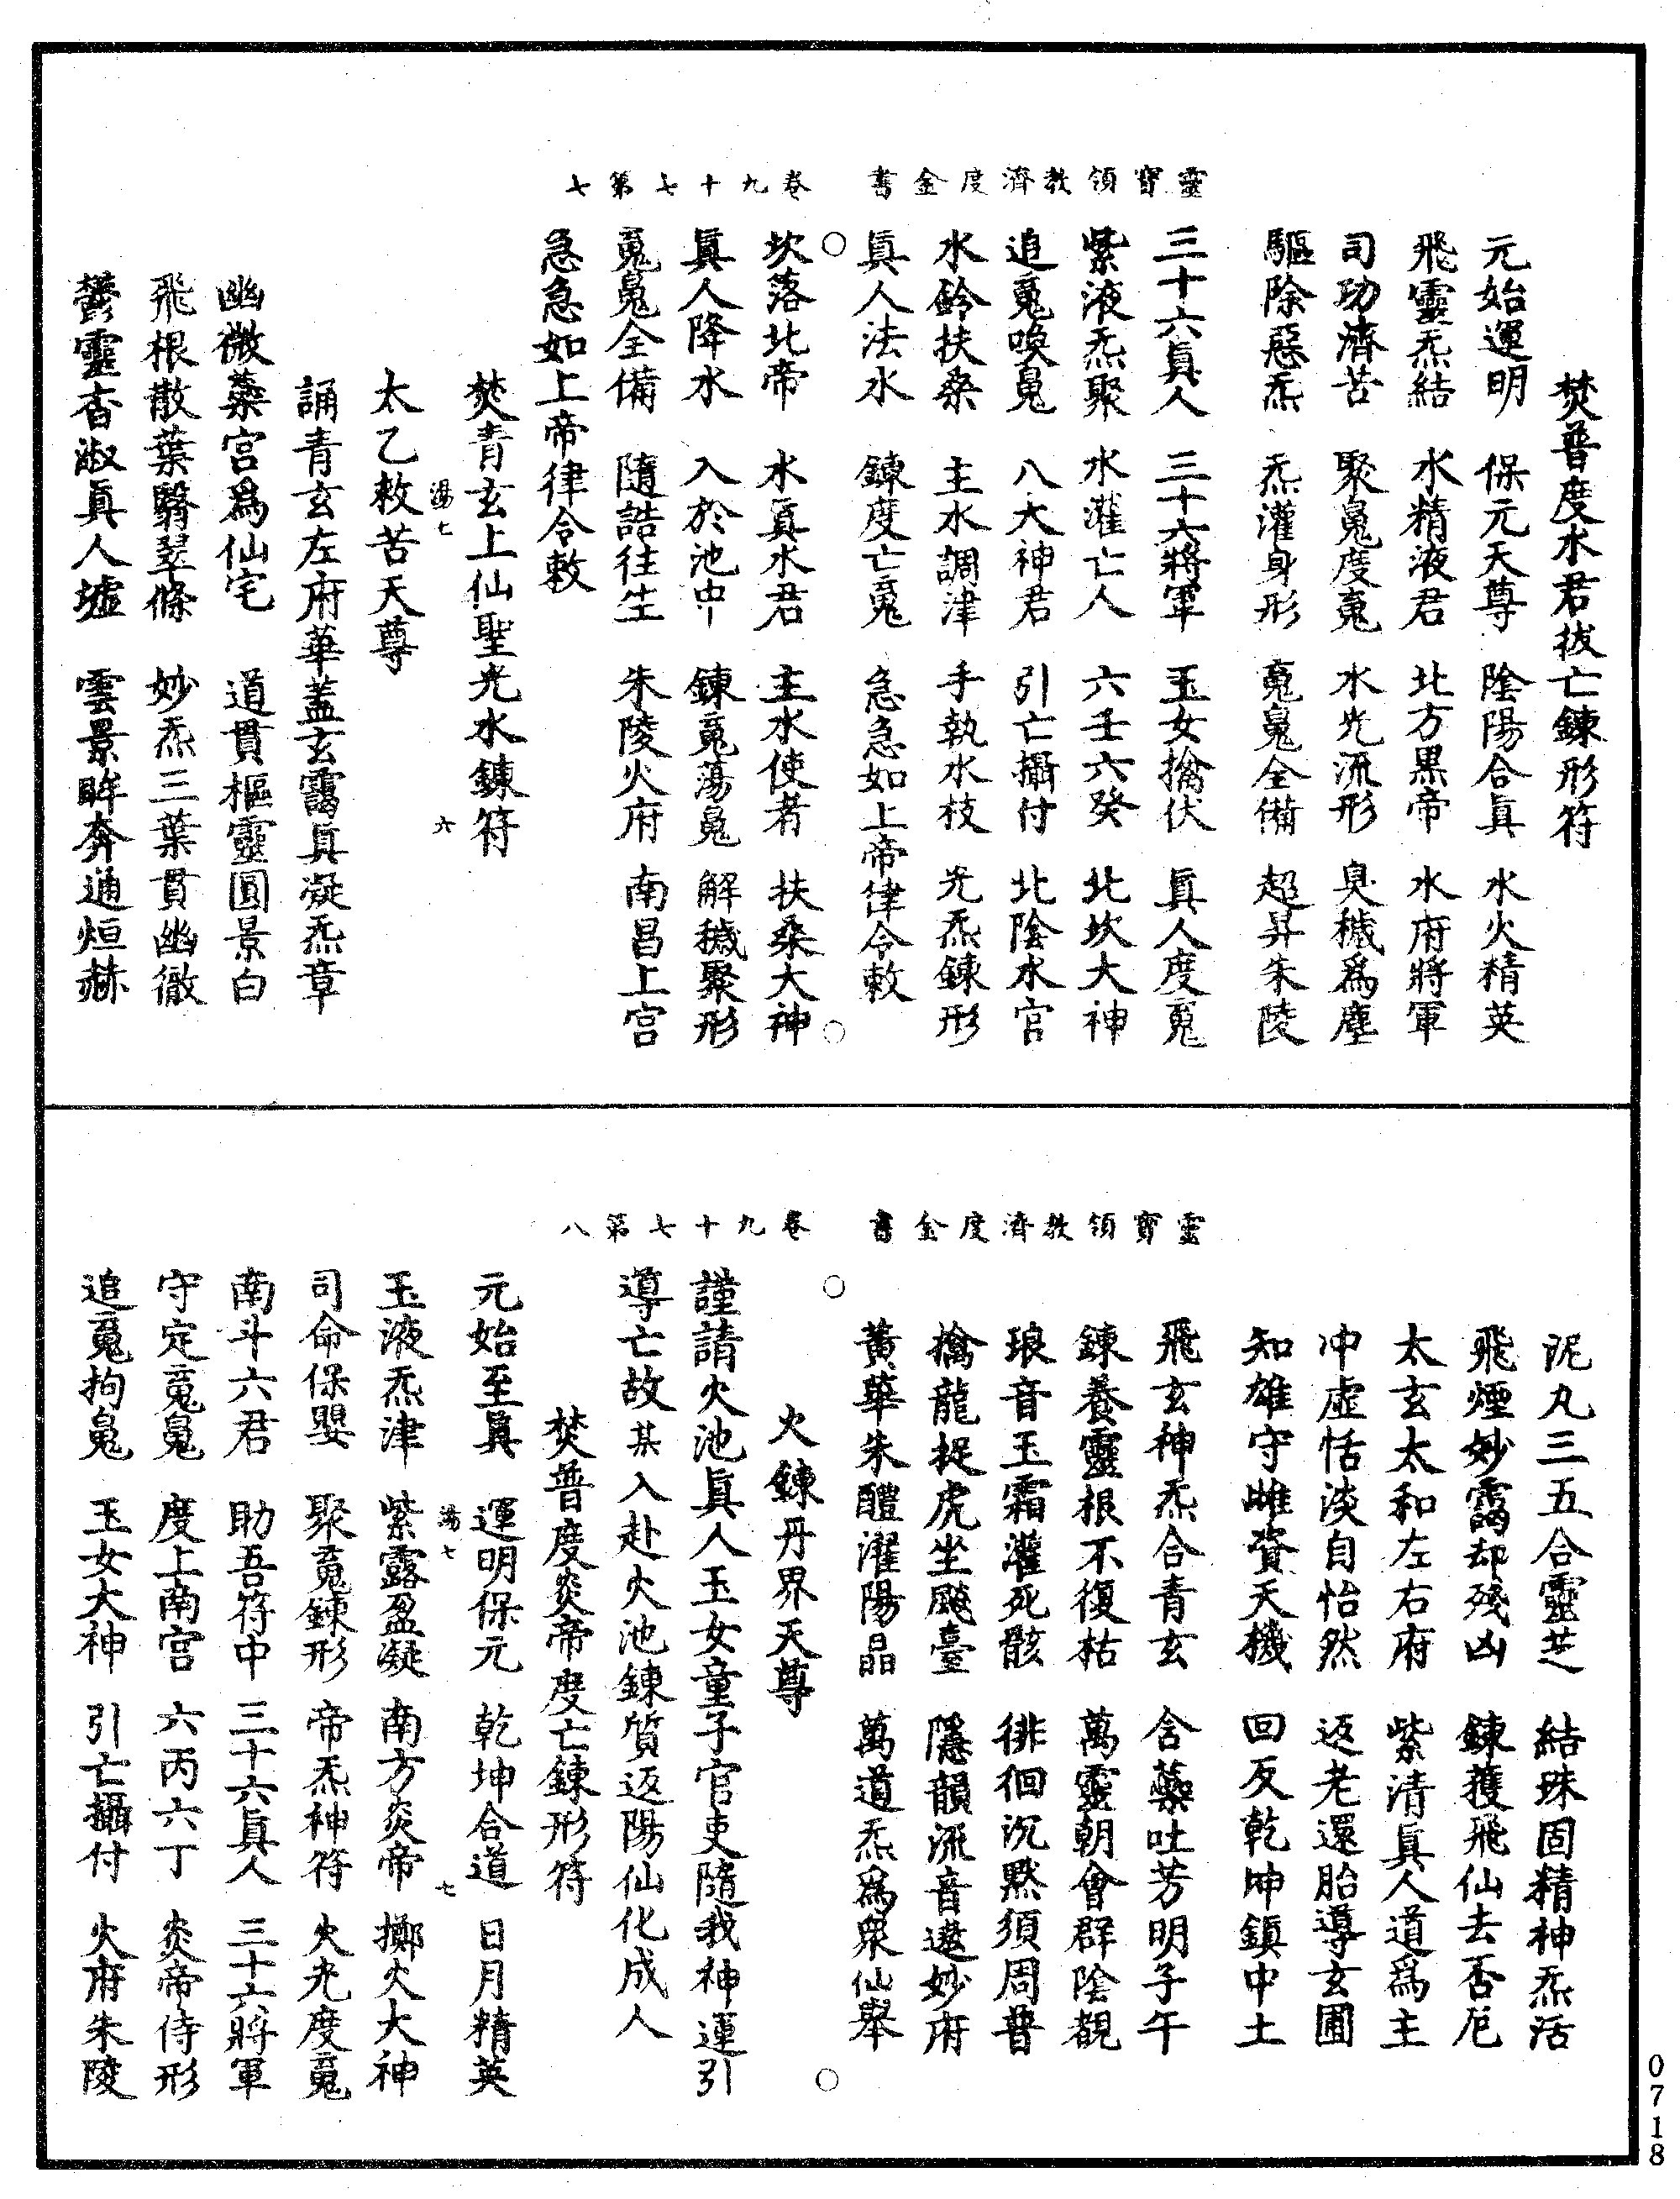 靈寶領教濟度金書　卷九十七第七
焚普度水君拔亡鍊形符
元始運明　保元天尊　陰陽合眞　水火精英
飛靈炁結　水精液君　北方黑帝　水府將軍
司功濟苦　聚䰟度䰟　水光流形　臭穢爲塵
驅除惡炁　炁灌身形　䰟䰟全備　超昇朱陵
三十六眞人　三十六將軍　玉女擒伏　眞人度䰟
紫液炁聚　水灌亡人　六壬六癸　北坎大神
追䰟喚䰟　八大神君　引亡攝付　北陰水官
水鈴扶桑　主水調津　手執水枝　光炁鍊形
眞人法水　鍊度亡䰟　急急如上帝律令敕
坎落北帝　水眞水君　主水使者　扶桑大神
眞人降水　入於池中　鍊䰟蕩䰟　解穢聚形
䰟䰟全備　隨誥往生　朱陵火府　南昌上宮
急急如上帝律令敕
焚青玄上仙聖光水鍊符
湯七　六
太乙救苦天尊
誦青玄左府華蓋玄靄眞凝炁章
幽微蘂宮爲仙宅　道貫樞靈圓景白
飛根散葉翳翠條　妙炁三葉貫幽徹
鬱靈杳淑眞人墟　雲景眸奔通烜赫
靈寶領教濟度金書　卷九十七第八
泥丸三五合靈芝　結珠固精神炁活
飛煙妙靄却殘凶　鍊獲飛仙去否厄
太玄太和左右府　紫清眞人道爲主
冲虛恬淡自怡然　返老還胎導玄圃
知雄守雌資天機　回反乾坤鎭中土
飛玄神炁合青玄　含蘂吐芳明子午
鍊養靈根不復枯　萬靈朝會群陰覩
琅音玉霜灌死骸　徘徊沉默須周普
擒龍捉虎坐飈臺　隱韻流音遨妙府
黃華朱醴濯陽晶　萬道炁爲衆仙舉
火鍊丹界天尊
謹請火池眞人玉女童子官吏隨我神運引
導亡故某入赴火池鍊質返陽仙化成人
焚普度炎帝度亡鍊形符
元始至眞　運明保元　乾坤合道　日月精英
湯七　七
玉液炁津　紫露盈凝　南方炎帝　擲火大神
司命保嬰　聚䰟鍊形　帝炁神符　火光度䰟
南斗六君　助吾符中　三十六眞人　三十六將軍
守定䰟䰟　度上南宮　六丙六丁　炎帝侍形
追䰟拘䰟　玉女大神　引亡攝付　火府朱陵
0718